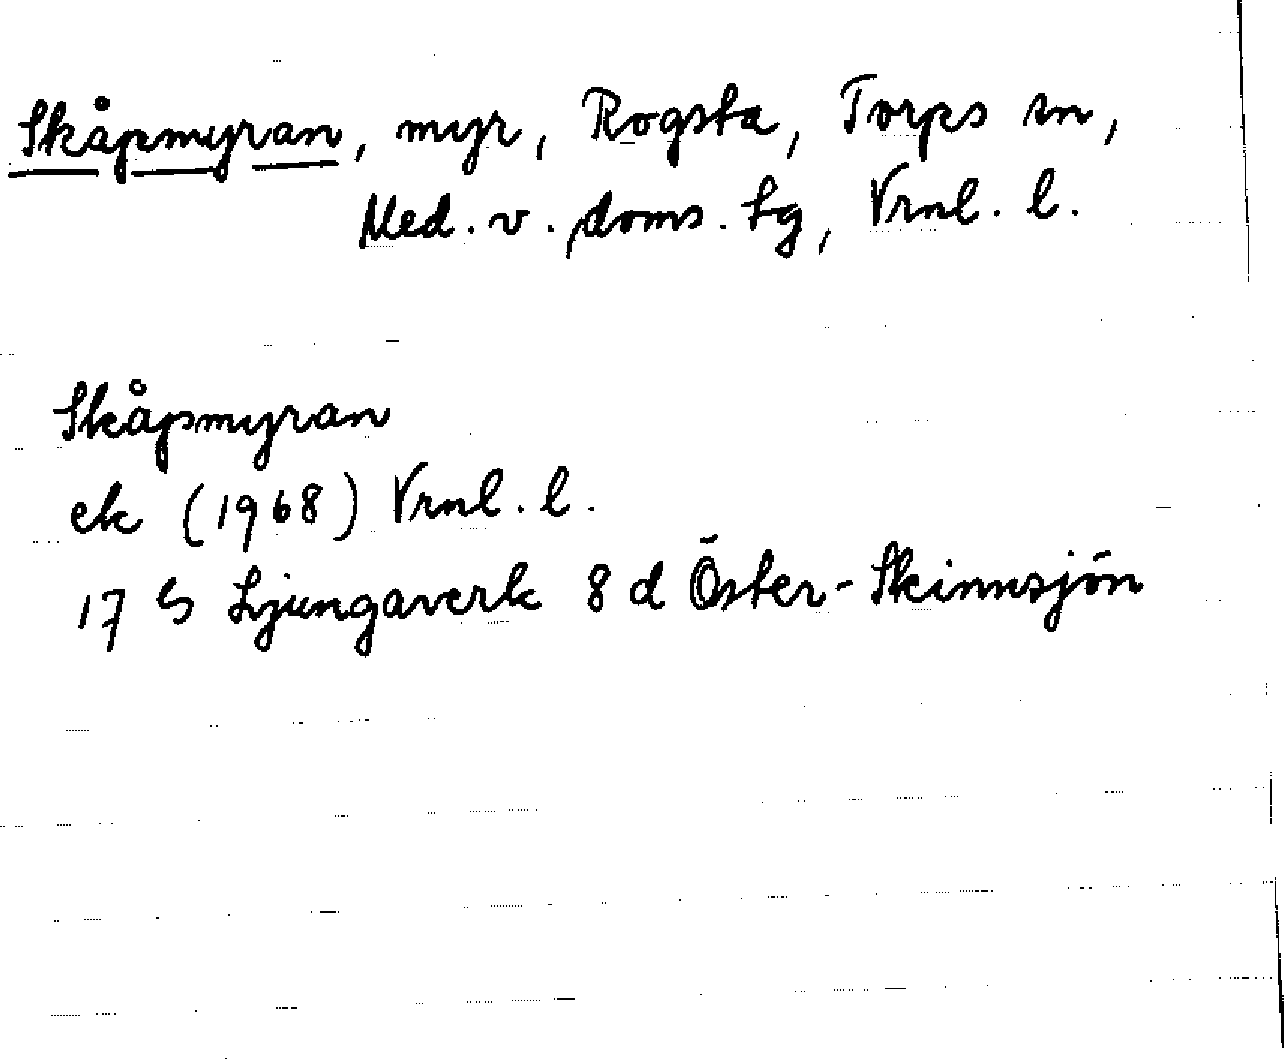 Skåpmyran, myr, Rogsta, Torps sn,
Med. v. doms. tg, Vrnl. l.
Skåpmyran
ek (1968) Vrnl. l.
17 G Ljungaverk 8 d Öster-Skinnsjön